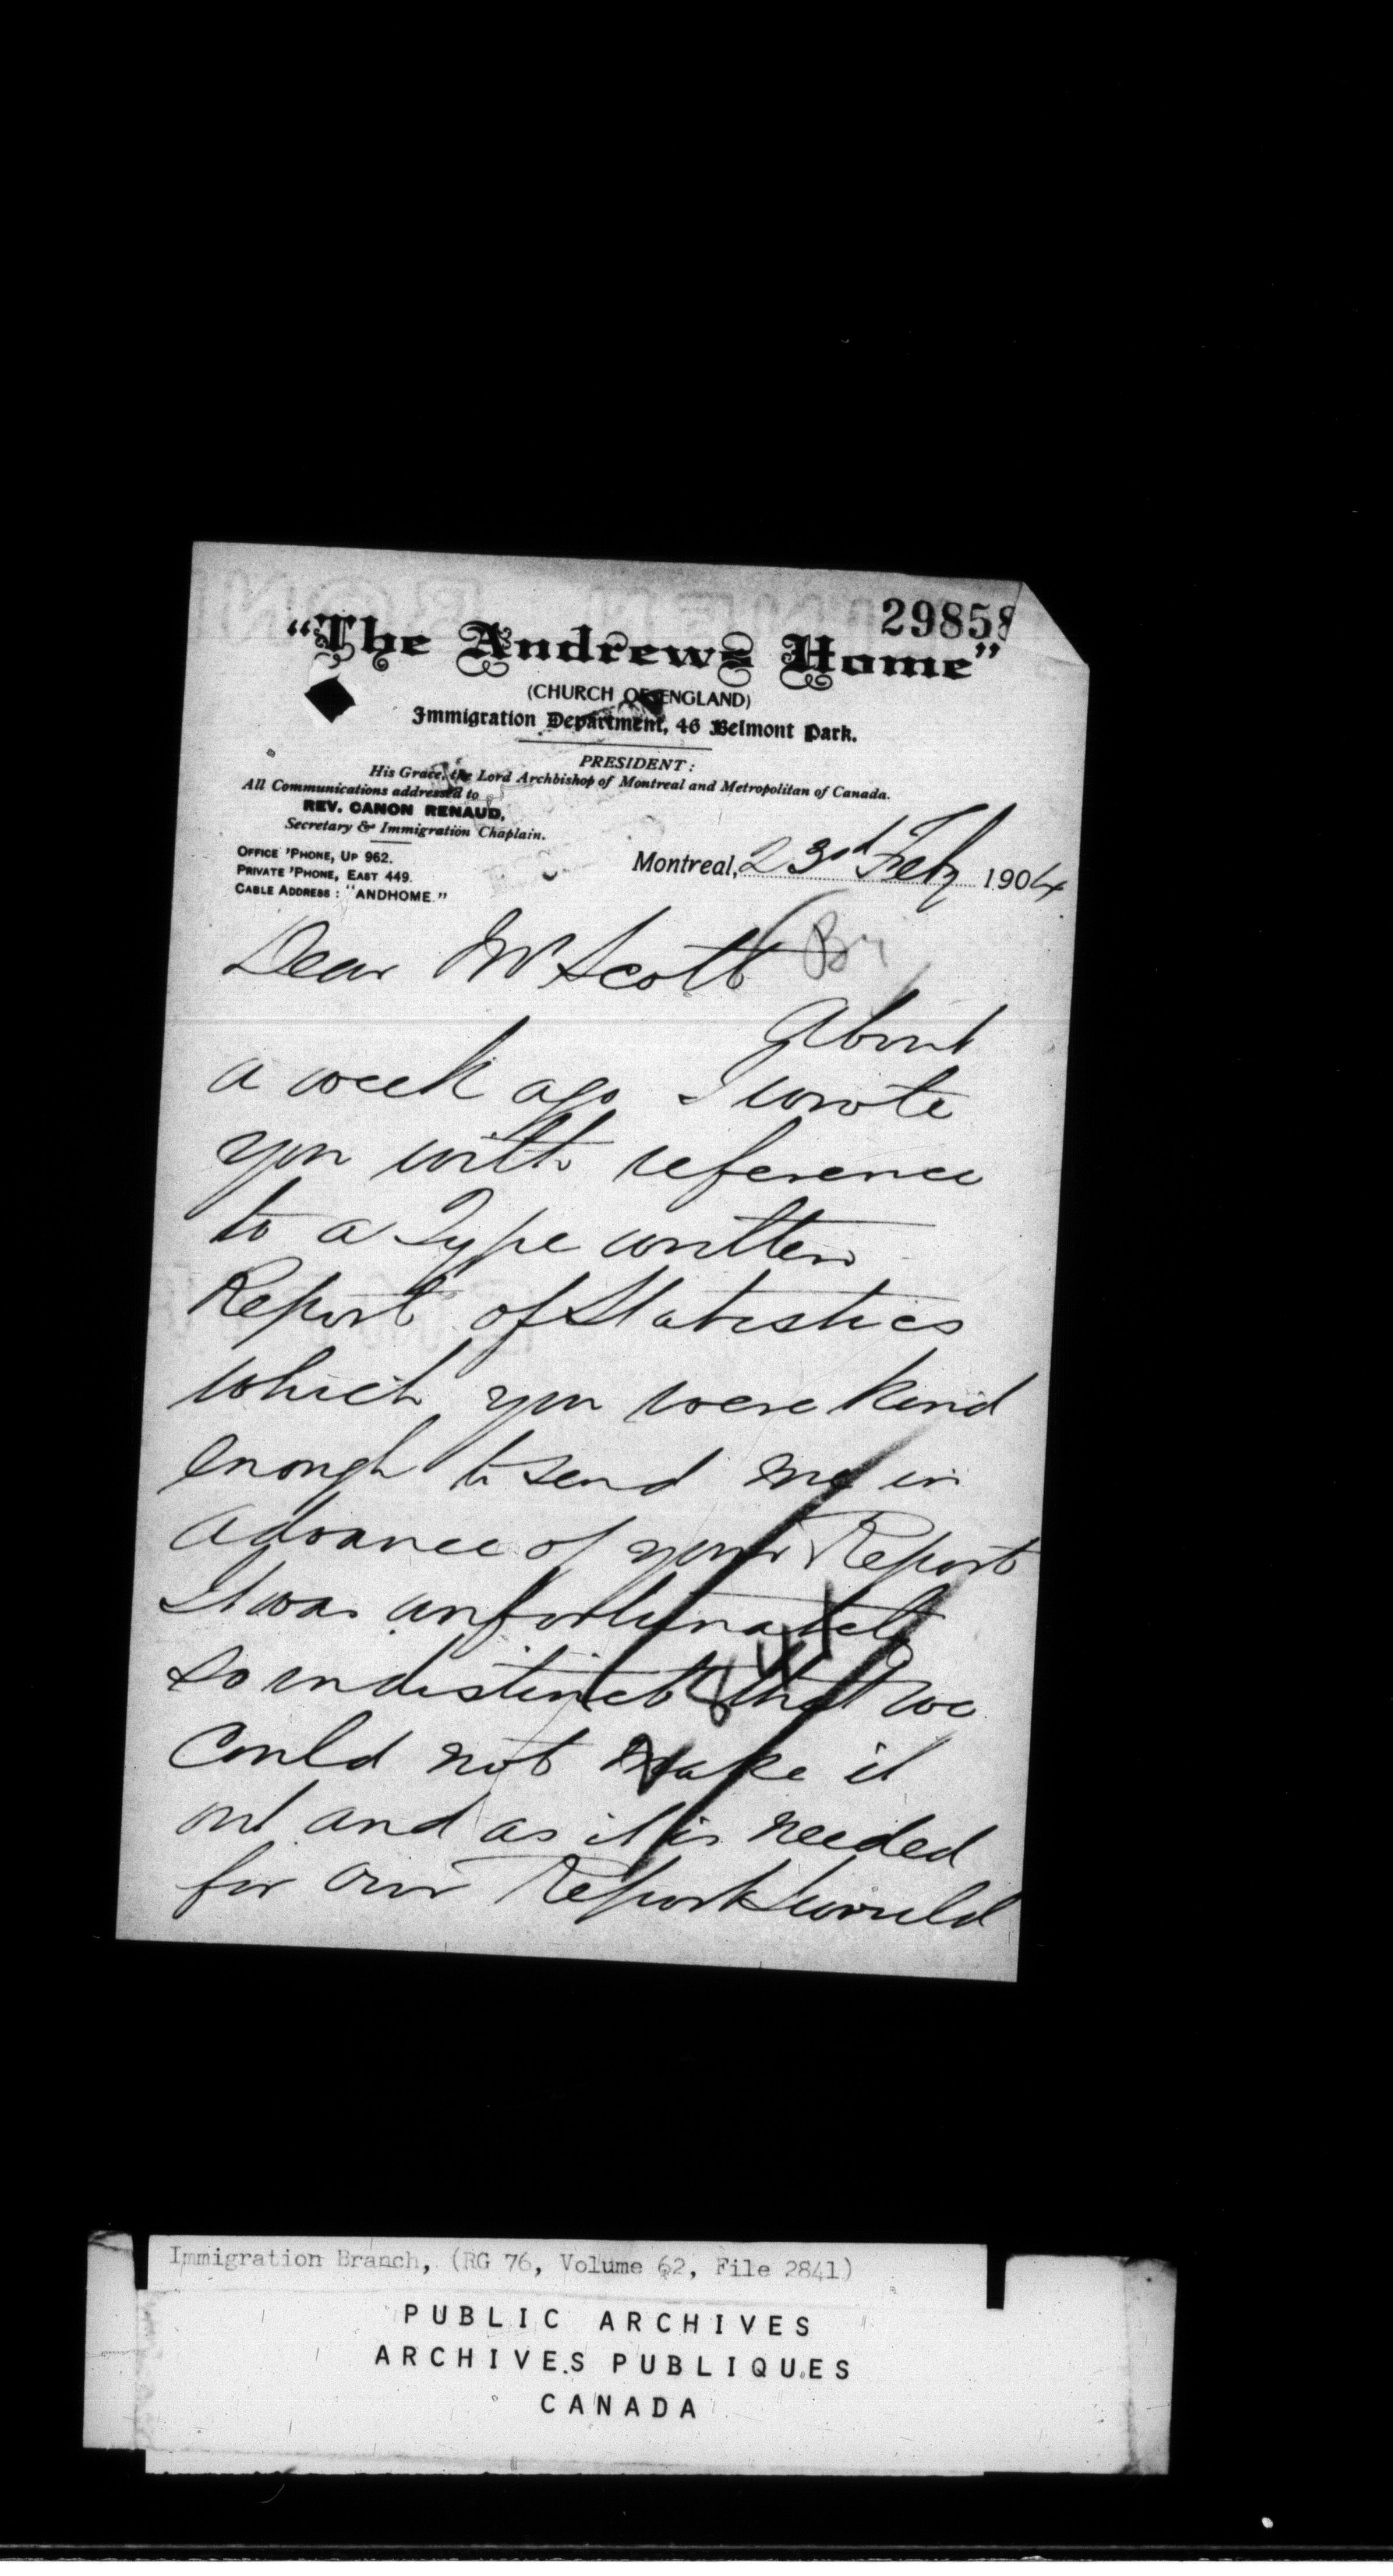 29858
"The Andrews Home"
(CHURCH OF ENGLAND)
Immigration Department, 46 Belmont Park.
PRESIDENT:
His Grace, the Lord Archbishop of Montreal and Metropolitan of Canada.
All Communications addressed to
REV. CANON RENAUD,
Secretary & Immigration Chaplain.
OFFICE 'PHONE, UP 962.
PRIVATE 'PHONE, EAST 449.
CABLE ADDRESS: "ANDHOME."
Montreal, 23rd Feby 1904
Dear Mr Scott
About
a week ago I wrote
you with reference
to a Type written
Report of Statistics
which you were kind
enough to send me in
advance of your Report
It was unfortunately
so indistinct that we
could not make it
out and as it is needed
for our Report I would
Immigration Branch, (RG 76, Volume 62, File 2841)
PUBLIC ARCHIVES
ARCHIVES PUBLIQUES
CANADA